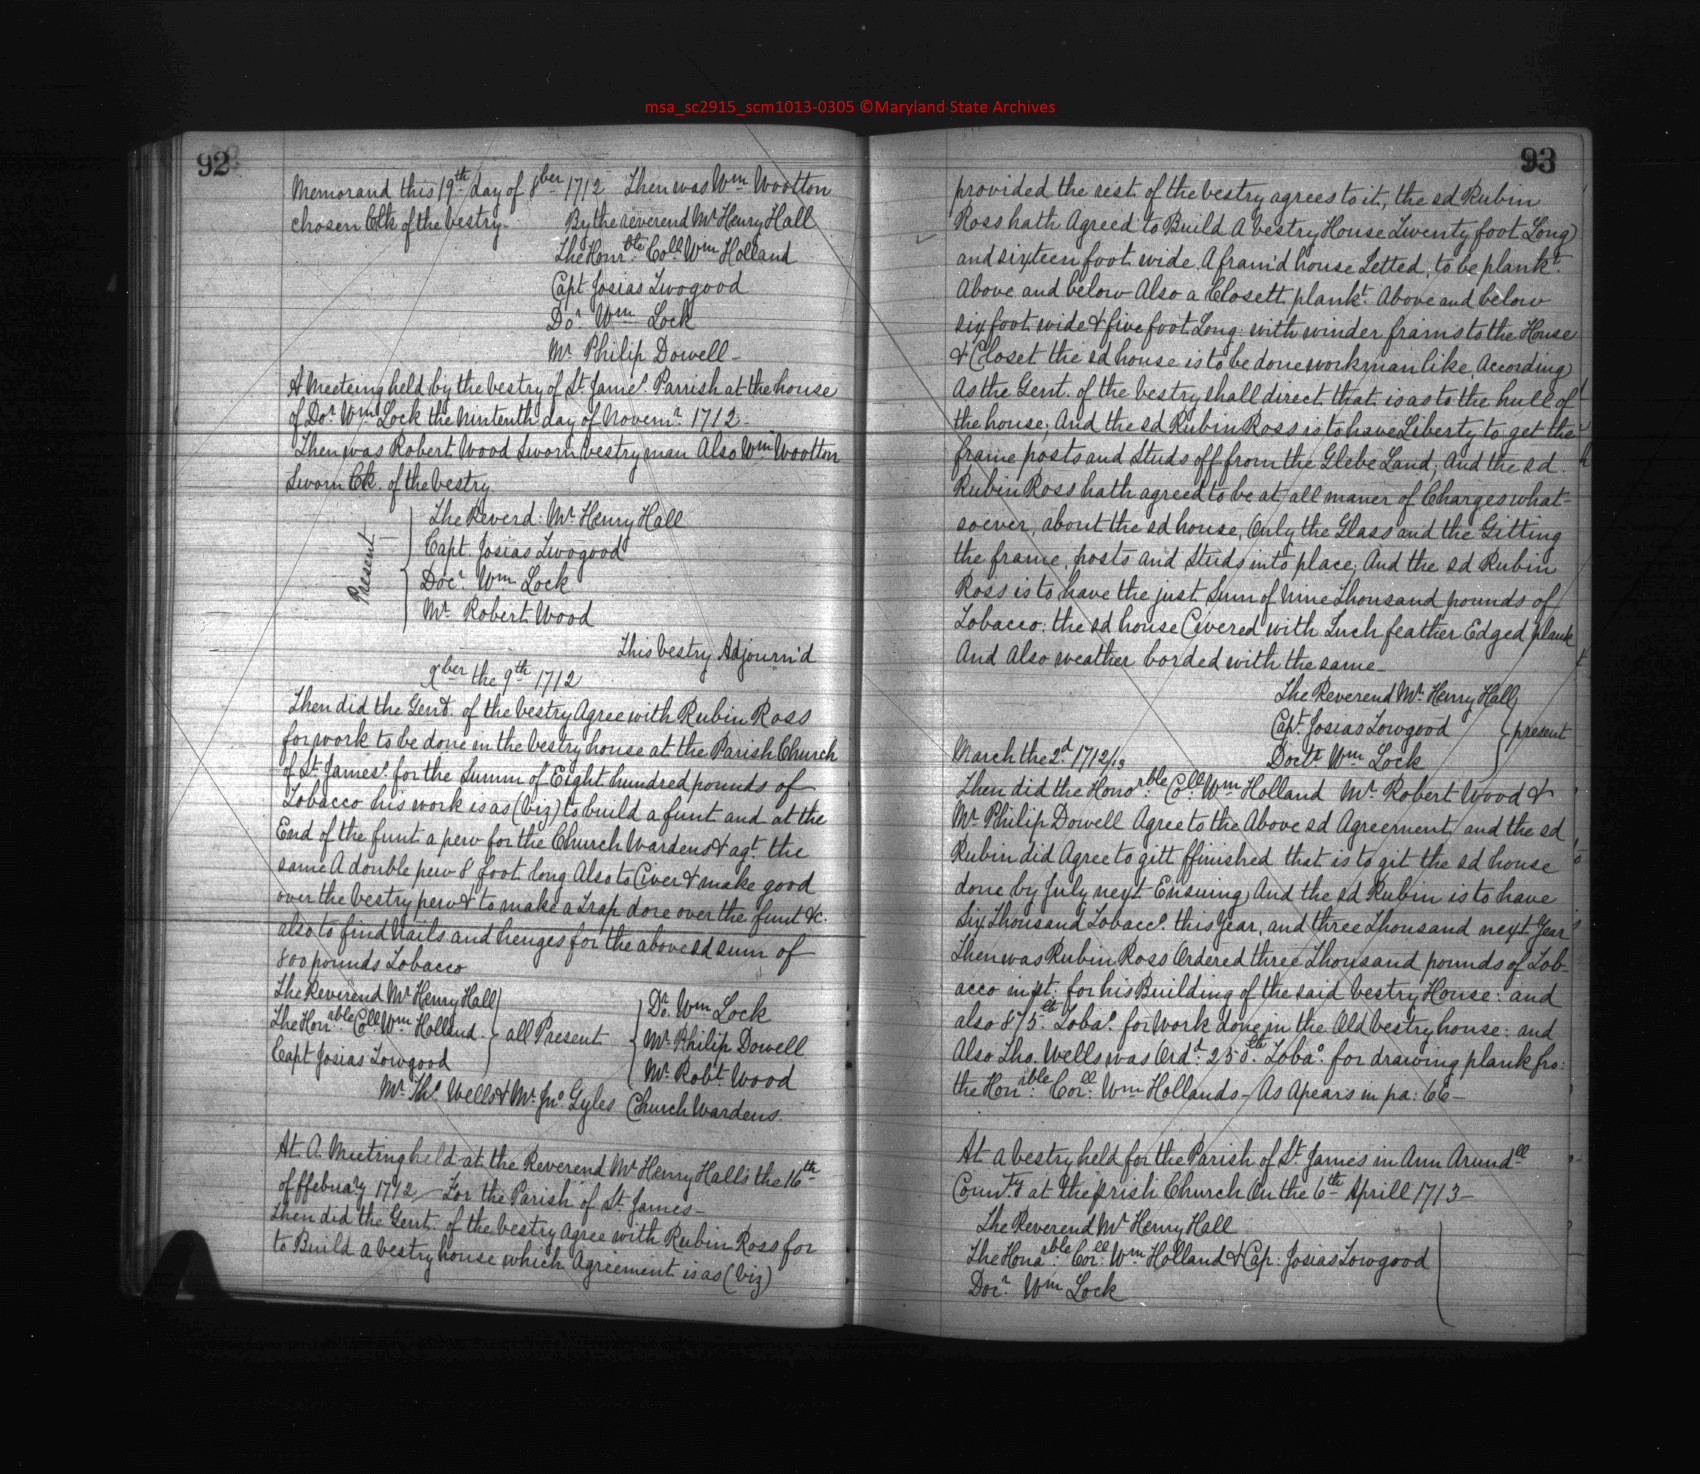 msa_sc2915_scm1013-0305 ©Maryland State Archives
92
Memorand this 19th day of 8ber 1712 Then was Wm Wootton
chosen Clk of the vestry. By the reverend Mr Henry Hall
The Honrble Coll Wm Holland
Capt Josias Twogood
Dor Wm Lock
Mr Philip Dowell –
A Meeteing held by the vestry of St Jame's Parrish at the house
of Dor Wm Lock the Nintenth day of Novemr 1712 –
Then was Robert Wood Sworn vestry man Also Wm Wootton
Sworn Clk. of the vestry.
Present
The Reverd: Mr Henry Hall
Capt. Josias Twogood
Docr Wm Lock
Mr Robert Wood
This vestry Adjourn'd
Xber the 9th 1712
Then did the Gent. of the vestry Agree with Rubin Ross
for work to be done in the vestry house at the Parish Church
of St James's for the Summ of Eight hundred pounds of
Tobacco his work is as (viz) to build a funt and at the
End of the funt a pew for the Church Wardens & agt. the
same A double pew 8 foot long Also to Civer & make good
over the vestry pew & to make a Trap dore over the funt &c.
also to find nails and henges for the above sd sum of
800 pounds Tobacco
The Reverend Mr Henry Hall
The Honrable Coll Wm Holland
Capt Josias Towgood
all Present
Dr. Wm Lock
Mr Philip Dowell
Mr Robt Wood
Mr Tho Wells & Mr Jno Gyles Church Wardens.
At A Meeting held at the Reverend Mr Henry Halls the 16th
of ffebruary 1712 For the Parish of St James –
Then did the Gent. of the vestry Agree with Rubin Ross for
to Build a vestry house which Agreement is as (viz)
93
provided the rest of the vestry agrees to it, the sd Rubin
Ross hath Agreed to Build A vestry House Twenty foot Long
and sixteen foot wide A fram'd house Jetted, to be plankt
Above and below Also a Closett plankt Above and below
six foot wide & five foot Long with winder frams to the House
& Closet the sd house is to be done workman like According
As the Gent. of the vestry shall direct that is as to the hull of
the house; And the sd Rubin Ross is to have Liberty to get the
frame posts and Studs off from the Glebe Land; And the sd
Rubin Ross hath agreed to be at all maner of Charges what-
soever, about the sd house, Only the Glass and the Gitting
the frame, posts and Studs into place; And the sd Rubin
Ross is to have the just Sum of Nine Thousand pounds of
Tobacco: the sd house Civered with Inch feather Edged plank
And Also weather borded with the same –
The Reverend Mr Henry Hall
Capt Josias Towgood
Doctr Wm Lock
present
March the 2d 1712/13
Then did the Honorble Coll Wm Holland Mr Robert Wood &
Mr Philip Dowell Agree to the Above sd Agreement, and the sd
Rubin did Agree to gitt ffinished that is to git the sd house
done by July next Ensuing And the sd Rubin is to have
Six Thousand Tobacco this Year, and three Thousand next Year
Then was Rubin Ross Ordered three Thousand pounds of Tob-
acco in pt. for his Building of the said vestry House: and
also 875 lt Toba: for Work done in the Old vestry house: and
Also Tho. Wells was Ordd 250 lb Toba: for drawing plank fro:
the Honrble Coll Wm Hollands – As Apears in pa: 66 –
At a vestry held for the Parish of St James in Ann Arundll
County at the prish Church On the 6th Aprill 1713 –
The Reverend Mr Henry Hall
The Honarble Coll Wm Holland & Cap: Josias Towgood
Docr Wm Lock